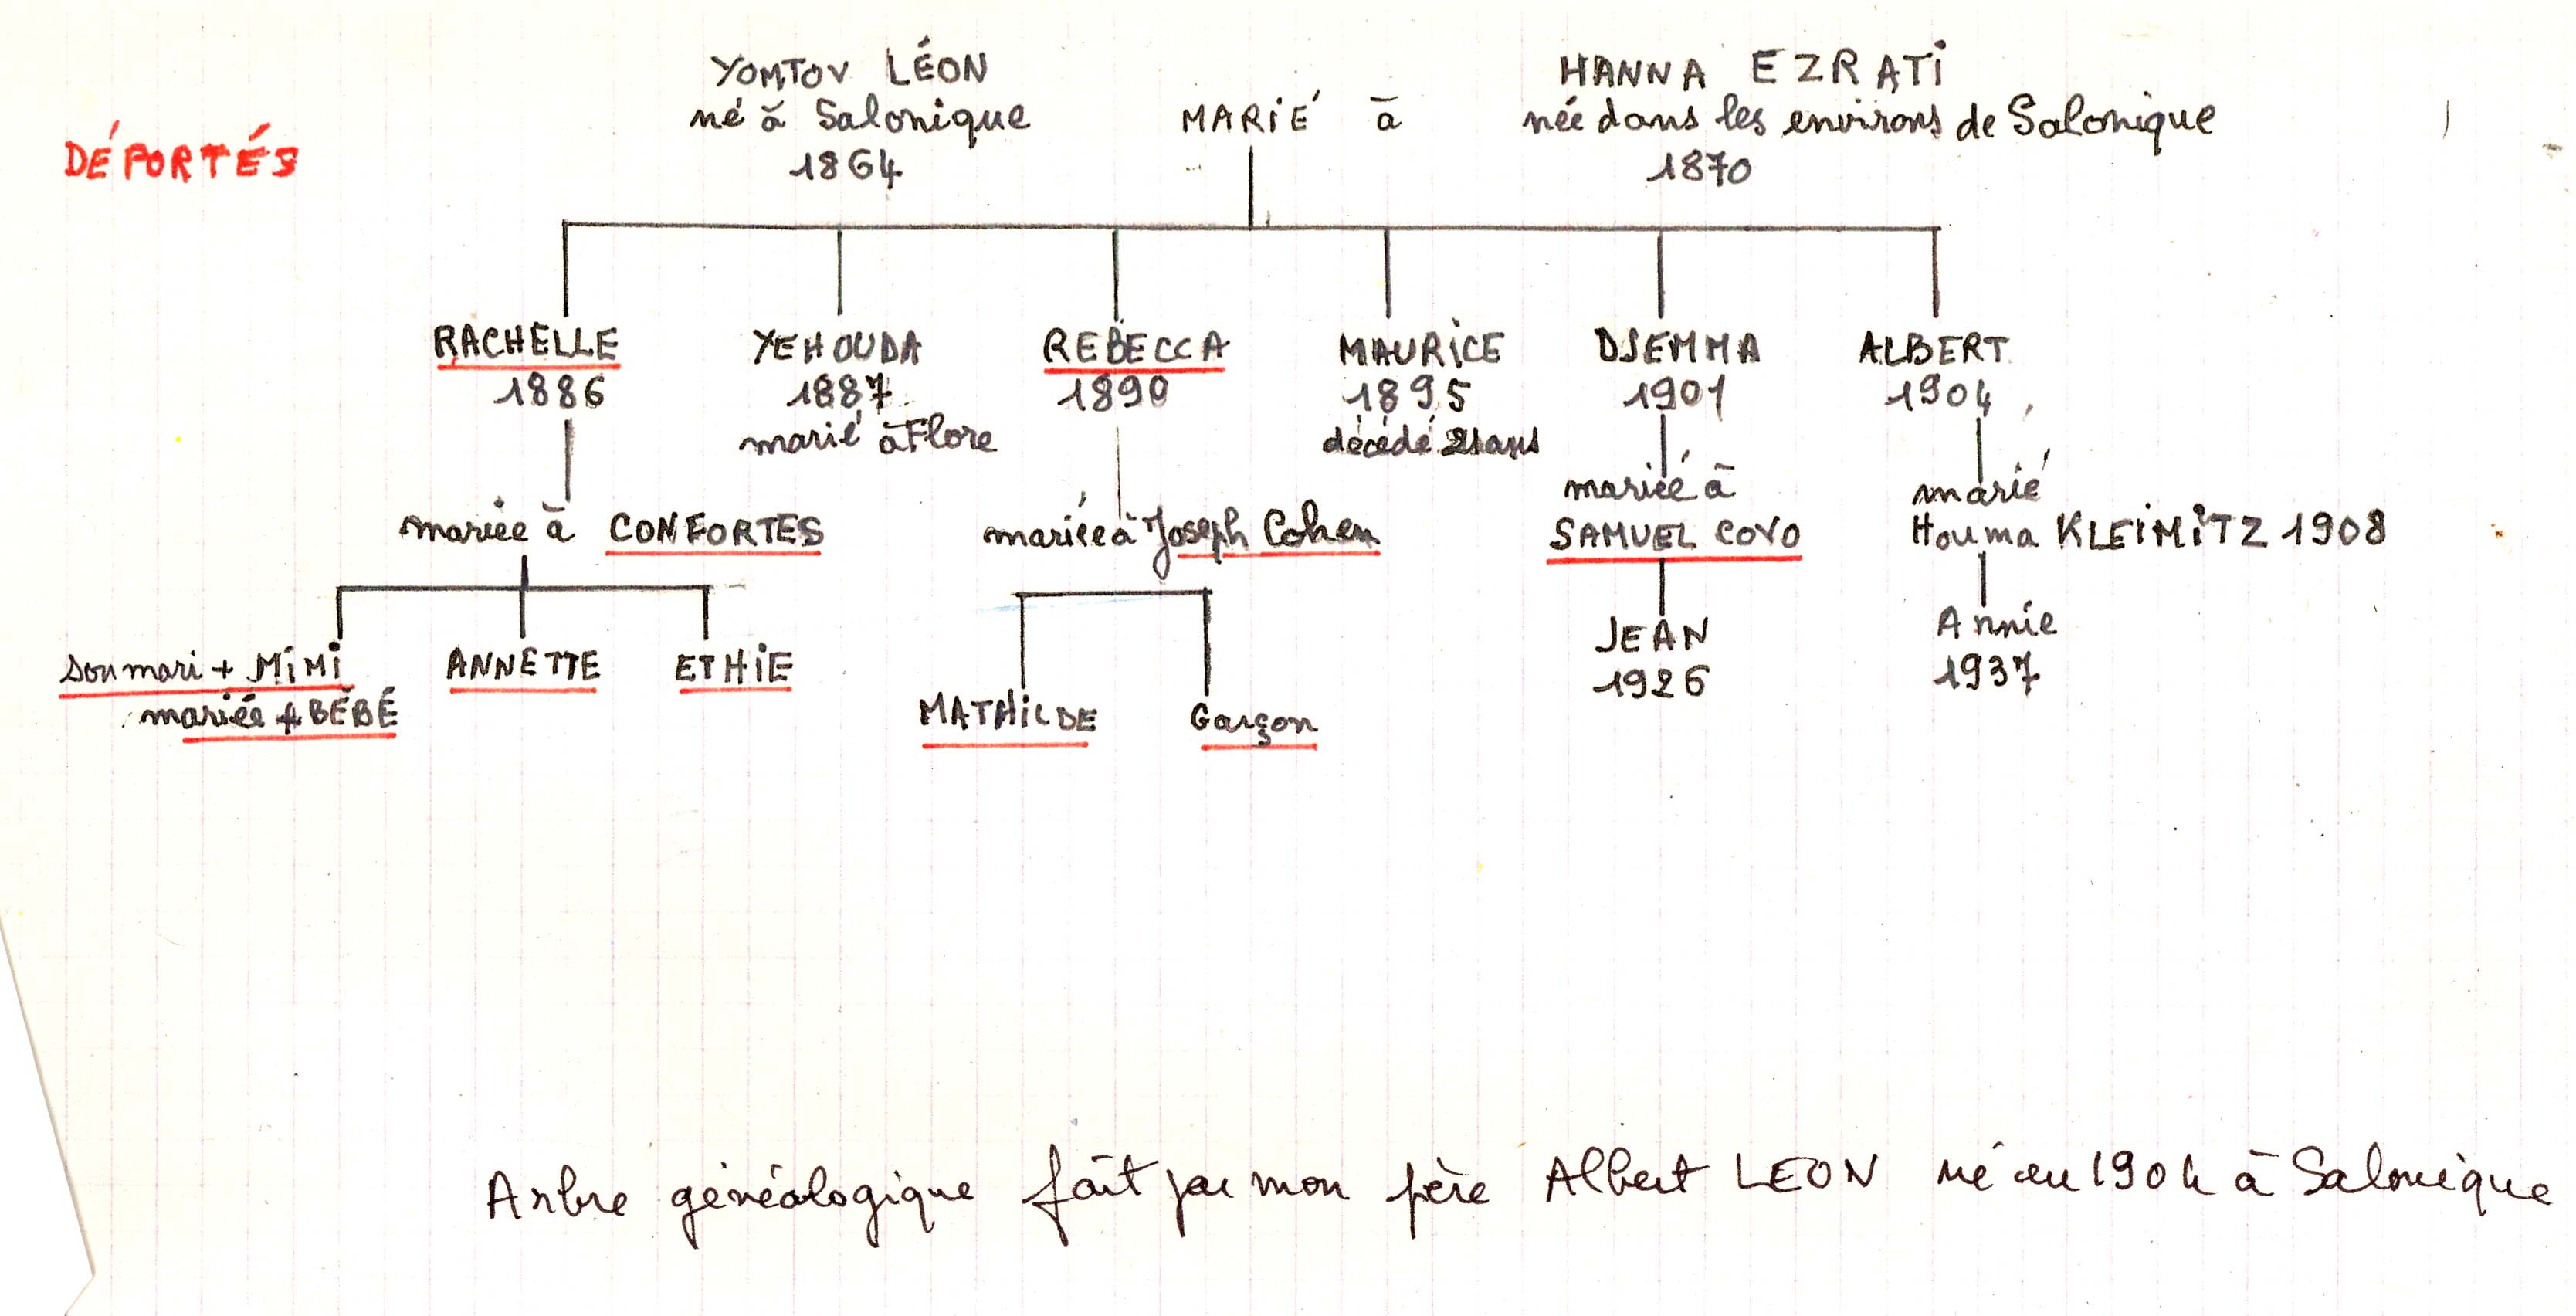 DÉPORTÉS
YOMTOV LÉON
né à Salonique
1864
MARIÉ à
HANNA EZRATI
née dans les environs de Salonique
1870
RACHELLE
1886
mariée à CONFORTES
YEHOUDA
1887
marié à Flore
REBECCA
1890
mariée à Joseph Cohen
MAURICE
1895
décédé 21 ans
DJEMMA
1901
mariée à
SAMUEL COVO
ALBERT
1904
marié
Houma KLEIMITZ 1908
son mari + MIMI
mariée + BÉBÉ
ANNETTE
ETHIE
MATHILDE
Garçon
JEAN
1926
Annie
1937
Arbre généalogique fait par mon père Albert LEON né en 1904 à Salonique